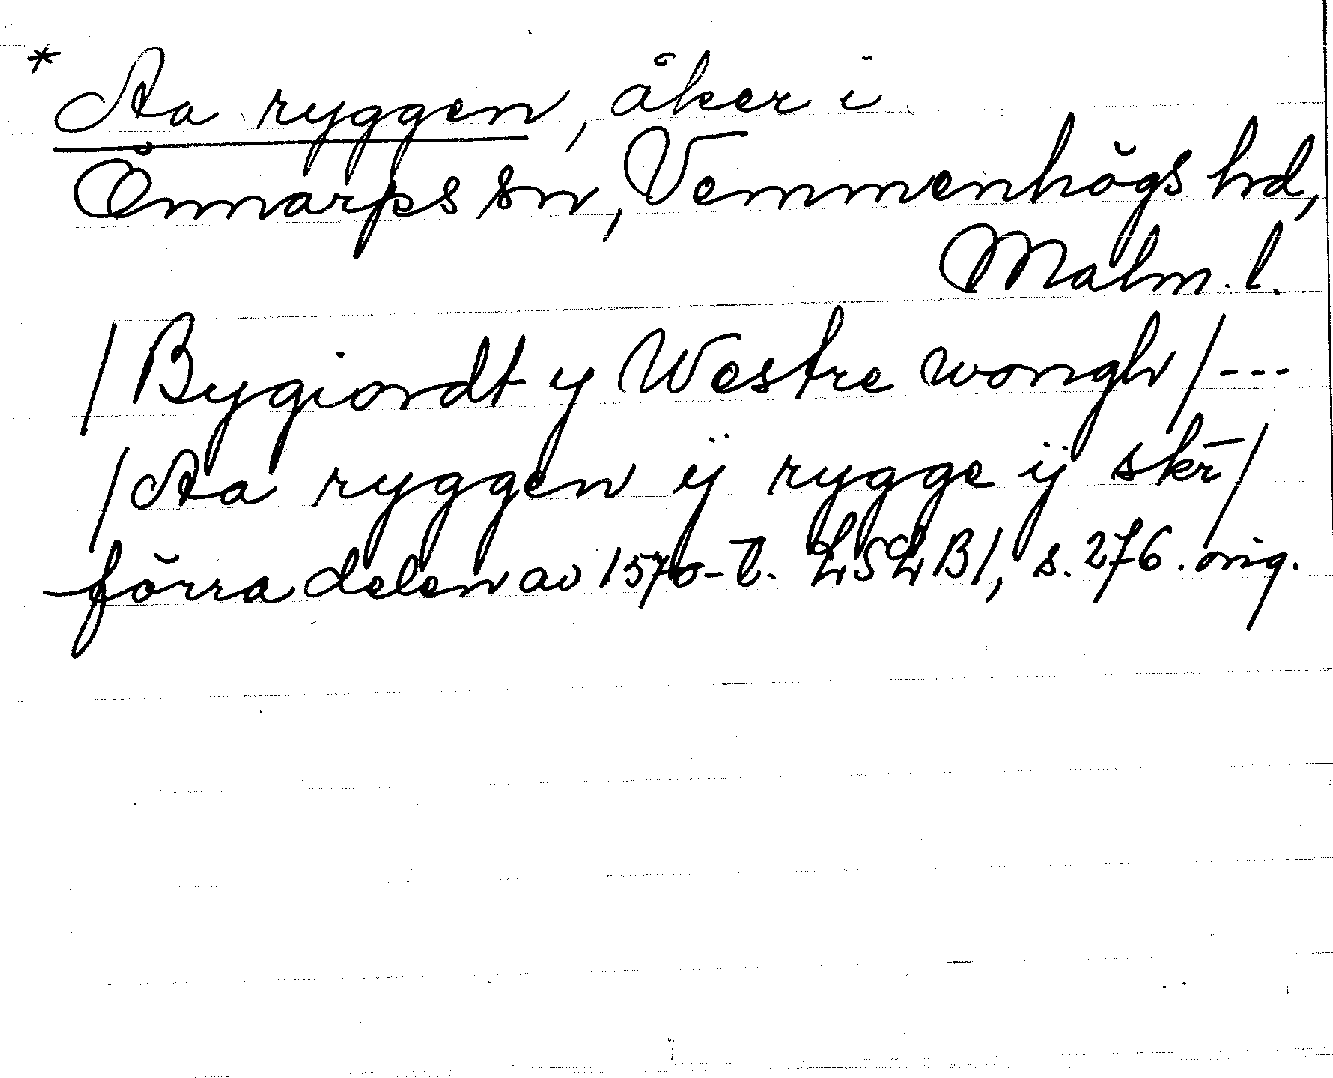 * Aa ryggen, åker i
Önnarps sn, Vemmenhögs hd,
Malm. l.
/Bygiordt y Westre wongh/---
/Aa ryggen ÿ rygge ÿ skr̄/
förra delen av 1570-t. LSLB1, s. 276. orig.